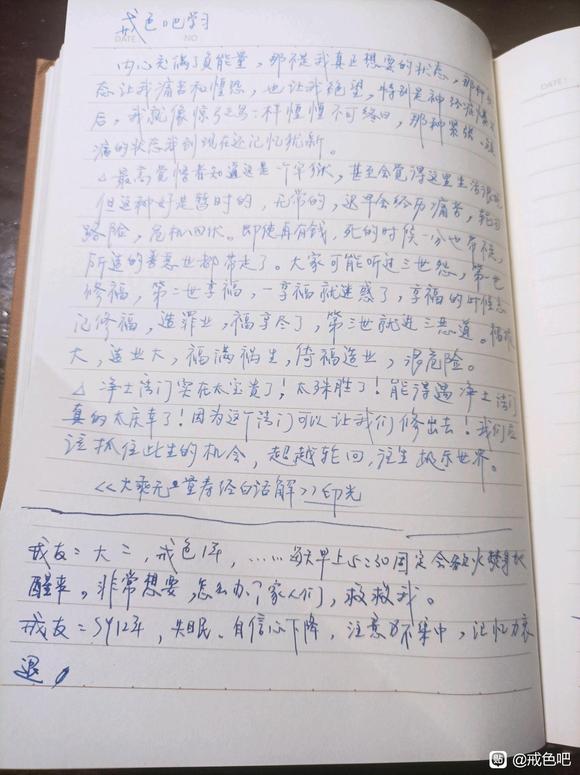 戒色吧学习
DATE NO
DATE:
内心充满了负能量，那不是我真正想要的状态，那种
态让我痛苦和懊恼，也让我绝望，特别是神经症爆
后，我就像惊弓之鸟一样惶惶不可终日，那种紧张
的状态我到现在还记忆犹新。
△最高觉悟者知道这是一个牢狱，甚至会觉得这里生活很
但这种好是暂时的，无常的，迟早会经历痛苦，轮回
路险，危机四伏。即使再有钱，死的时候一分也带不走，
所造的善恶业都带走了。大家可能听过三世怨，第一世
修福，第二世享福，一享福就迷惑了，享福的时候忘
记修福，造罪业，福享尽了，第三世就进三恶道。福报
大，造业大，福满祸生，倚福造业，很危险。
△净土法门实在太宝贵了！太殊胜了！能得遇净土法门
真的太庆幸了！因为这个法门可以让我们修出去！我们应
该抓住此生的机会，超越轮回，往生极乐世界。
《大乘无量寿经白话解》印光
戒友：大二，戒色1年，……每天早上5:30固定会欲火焚身地
醒来。非常想要，怎么办了家人们，救救我。
戒友：SY12年，失眠、自信心下降，注意力不集中，记忆力衰
退。
贴 @戒色吧